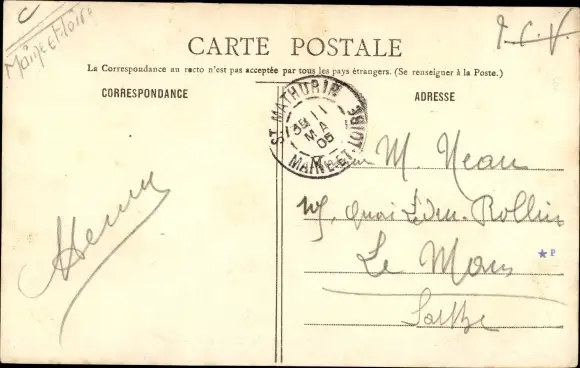 Maine et Loire
T.C.V.
CARTE POSTALE
La Correspondance au recto n'est pas acceptée par tous les pays étrangers. (Se renseigner à la Poste.)
CORRESPONDANCE
ADRESSE
ST MATHURIN
11
MA
05
MAINE-ET-LOIRE
M. Neau
Quai Ledru-Rollin
Le Mans
Sarthe
*P